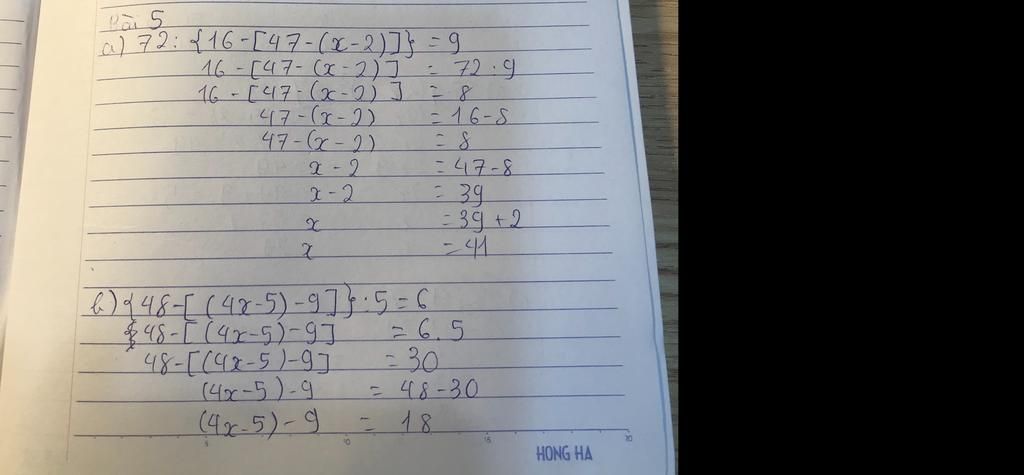 Bài 5
a) 72: {16-[47-(x-2)]} = 9
16-[47-(x-2)] = 72:9
16-[47-(x-2)] = 8
47-(x-2) = 16-8
47-(x-2) = 8
x-2 = 47-8
x-2 = 39
x = 39+2
x = 41
b) {48-[(4x-5)-9]}:5=6
48-[(4x-5)-9] = 6.5
48-[(4x-5)-9] = 30
(4x-5)-9 = 48-30
(4x-5)-9 = 18
5 10 15 20
HONG HA